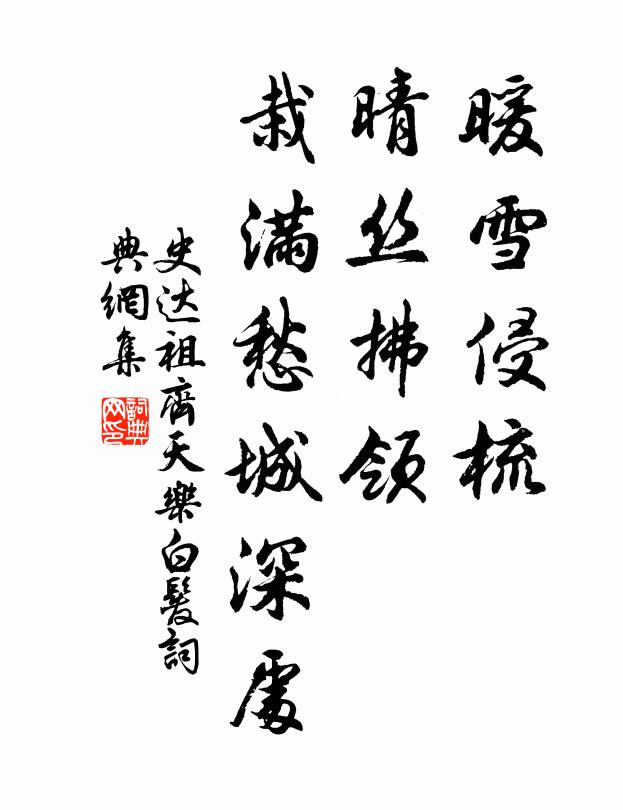 暖雪侵梳
晴丝拂领
栽满愁城深處
史达祖齊天樂白髮詞
典網集
詞典
网印